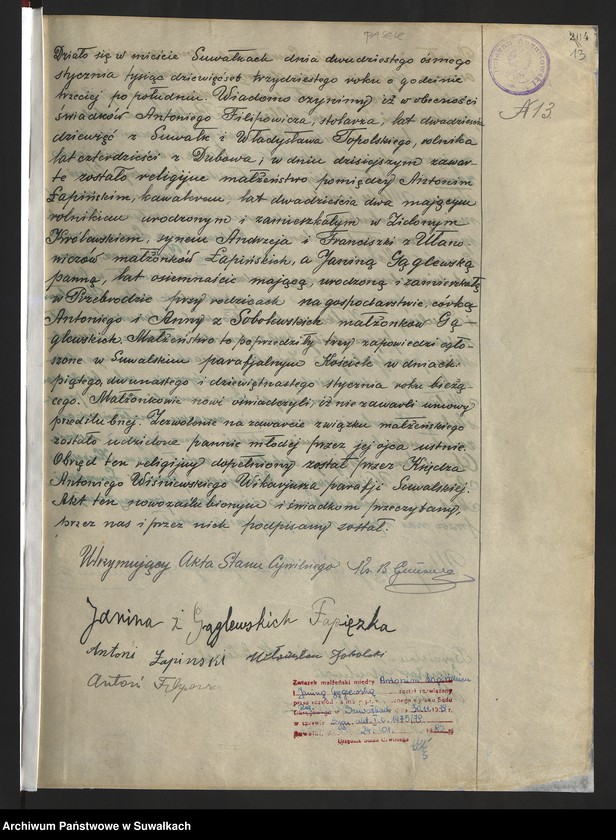 2114
13
№ 13.
Działo się w mieście Suwałkach dnia dwudziestego ósmego
stycznia tysiąc dziewięćset trzydziestego roku o godzinie
trzeciej po południu. Wiadomo czynimy, iż w obecności
świadków Antoniego Filipowicza, stolarza, lat dwadzieścia
dziewięć z Suwałk i Władysława Topolskiego, rolnika
lat czterdzieści z Dubowa, w dniu dzisiejszym zawar-
te zostało religijne małżeństwo pomiędzy Antonim
Łapińskim, kawalerem, lat dwadzieścia dwa mającym
rolnikiem urodzonym i zamieszkałym w Zielonym
Królewskiem, synem Andrzeja i Franciszki z Ułano
wiczów małżonków Łapińskich, a Janiną Gąglewską
panną, lat osiemnaście mającą, urodzoną i zamieszkałą
w Przebrodzie przy rodzicach na gospodarstwie, córką
Antoniego i Anny z Sobolewskich małżonków Gą-
glewskich. Małżeństwo to poprzedziły trzy zapowiedzi ogło-
szone w Suwalskim parafjalnym Kościele w dniach:
piątego, dwunastego i dziewiętnastego stycznia roku bieżą
cego. Małżonkowie nowi oświadczyli, iż nie zawarli umowy
przedślubnej. Zezwolenie na zawarcie związku małżeńskiego
zostało udzielone pannie młodej przez jej ojca ustnie.
Obrzęd ten religijny dopełniony został przez Księdza
Antoniego Wiśniewskiego Wikarjusza parafji Suwalskiej.
Akt ten nowozaślubionym i świadkom przeczytany,
przez nas i przez nich podpisany został.
Utrzymujący Akta Stanu Cywilnego Ks. B.
Janina z Gąglewskich Łapińska
Antoni Łapiński Władysław
Antoni
Związek małżeński między Antonim Łapińskim
i Janiną Gąglewską został rozwiązany
przez rozwód Sądu
w Suwałkach
w sprawie sygn. akt
Suwałki, dnia
Urzędu Stanu Cywilnego
Archiwum Państwowe w Suwałkach